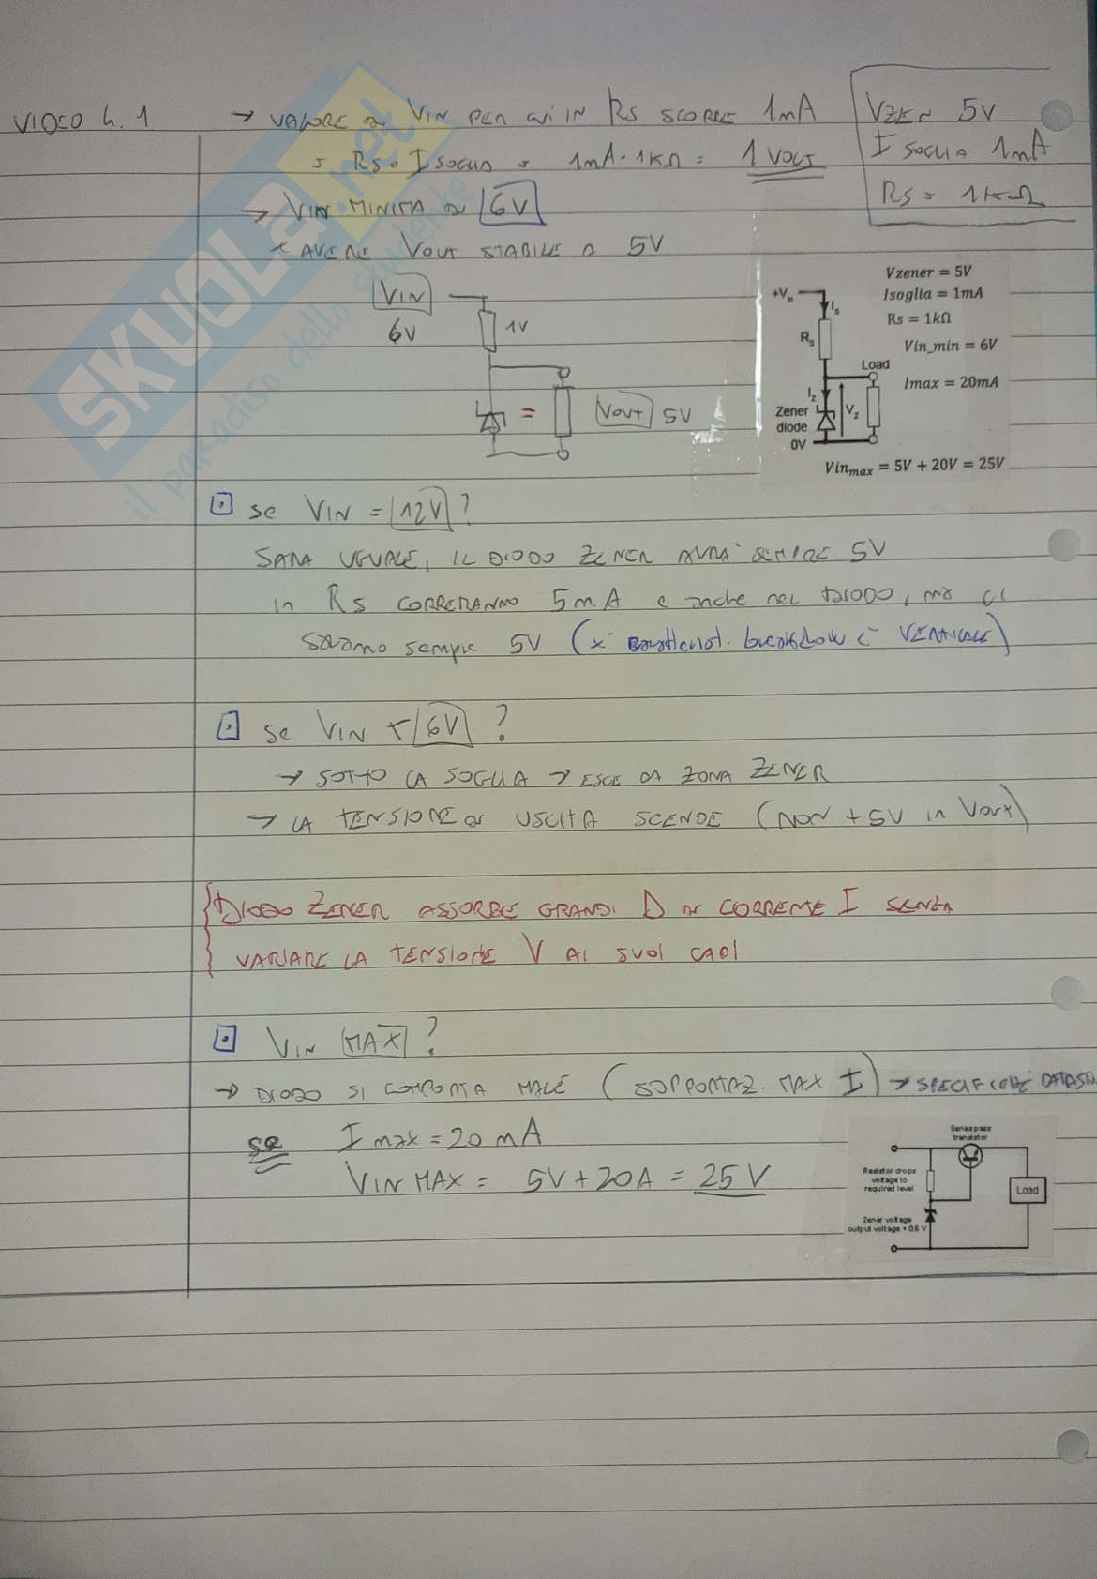 VIDEO 4.1
→ VALORE DI VIN PER CUI IN RS SCORRE 1mA
= RS · I SOGLIA = 1mA · 1KΩ = 1 VOLT
VZEN 5V
I SOGLIA 1mA
RS = 1KΩ
→ VIN MINIMA DI 6V
x AVERE VOUT STABILE A 5V
VIN
6V
1V
=
VOUT 5V
+Vs
Is
Rs
Load
Iz
Vz
Zener
diode
0V
Vzener = 5V
Isoglia = 1mA
Rs = 1kΩ
Vin_min = 6V
Imax = 20mA
Vinmax = 5V + 20V = 25V
se VIN = 12V ?
SARA UGUALE, IL DIODO ZENER AVRA' SEMPRE 5V
in RS CORRERANNO 5mA e anche nel DIODO, ma ci
saranno sempre 5V (x caratterist. breakdow è VERTICALE)
se VIN < 6V ?
→ SOTTO LA SOGLIA → ESCE DA ZONA ZENER
→ LA TENSIONE DI USCITA SCENDE (NON + 5V in Vout)
DIODO ZENER ASSORBE GRANDI Δ DI CORRENTE I SENZA
VARIARE LA TENSIONE V AI SUOI CAPI
VIN MAX ?
→ DIODO SI COMPORTA MALE (SOPPORTAZ. MAX I) →
se I max = 20 mA
VIN MAX = 5V + 20A = 25 V
Series pass
transistor
Resistor drops
voltage to
required level
Zener voltage
output voltage + 0.6 V
Load
SKUOLA.net
il paradiso dello studente